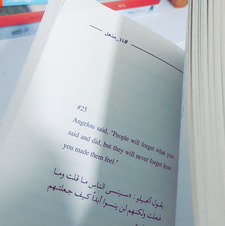 #11_مذهل
#25
Angelou said, "People will forget what you
said and did, but they will never forget how
you made them feel."
يقول أنجيلو: «سينسى الناس ما قلت وما
فعلت ولكنهم لن ينسوا أبداً كيف جعلتهم